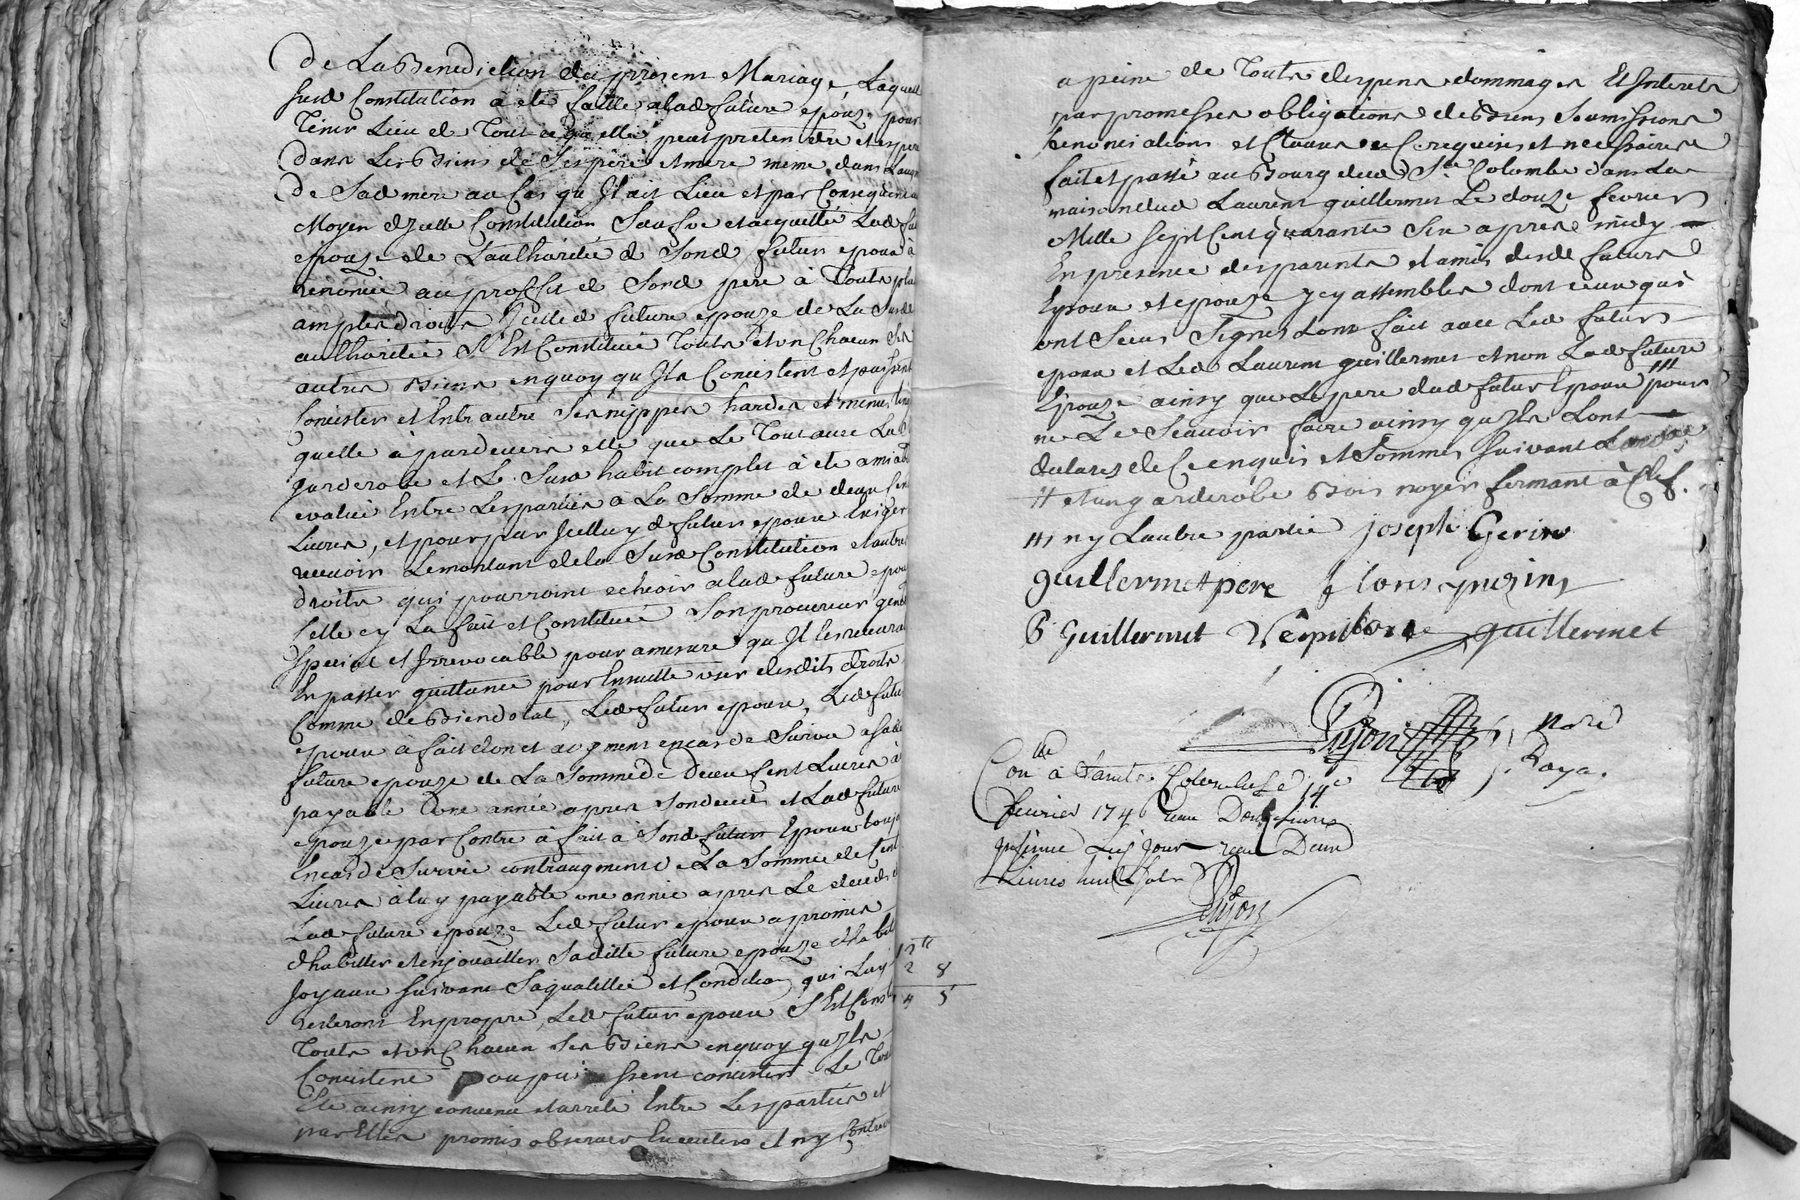 De La Benediction du present Mariage, Laquelle
susd Constitution a eté faitte a lad future epouze pour
Tenir Lieu de Tout ce qu'elle peut pretendre et esperer
dans Les Biens de Ses pere et mere meme dans Laugm
De Sad mere au Cas qu Jl ait Lieu et par Consequent au
Moyen d'Jcelle Constitution Sauf Lad fu
epouze de Lauthorité d Sond futur epoux à
renoncée au proffit de Sond pere à Touts plus
amples droits Jcelle d future epouze de La Susd
authorité S'Est Constituée Touts et un Chacun Ses
autres Biens en quoy qu Jls Concistent et puissent
Concister et Entr autre Ses nippes hardes et menus linge
quelle à pardevers elle que Le Tout avec La d
garderobe et Le Susd habit complet à eté amiabl
evalué Entre Les parties a La Somme de deux Cent
Livres, et pour par Jcelluy d futur epoux Exiger
recevoir Le montant de la Susd Constitution et autre
droits qui pourroint echeoir a lad future epou
Elle ey La fait et Constitué Son procureur general
special et Jrrevocable pour amesure qu Jl Les recevra
En passer quittance pour Ensuitte user desdits droits
Comme de Bien dotal, Led futur epoux, Led futur
epoux à fait don et augment en cas de Survie a sad
future epouze de La Somme de Deux Cent Livres à
payable Une année apres Son deces et Lad future
epouze par Contre à fait à Sond futur Epoux toujo
En cas de Survie contraugment de La Somme de Cent
Livres à luy payable une année apres Le deces d
Lad future epouze Led futur epoux a promis
d'habiller et enjouailler Saditte future epouze
Joyaux suivant Sa quallitée et Condition qui Luy
resteront En propre, Led futur epoux S'Est Const
Touts et un Chacun Ses Biens en quoy qu'Jls
Concistent ou puissent concister Le Tout
Eté ainsy convenu et arreté Entre Les parties et
par Elles promis observer Executer et n'y Contrev
a peine de Touts depens dommages Et Interets
par promesses obligations de Biens Soumissions
Renonciations et Clauses a Ce requises et necessaires
fait et passé au Bourg dud Ste Colombe dans La
maison dud Laurent guillermet Le douze fevrier
Mille Sept Cent quarante Six apres midy
En presence des parents et amis desd futurs
Epoux et epouze Jcy assemblés dont ceux qui
ont Sceus Signer Lont fait avec Led futur
epoux et Led Laurent guillermet et non Lad future
Epouze ainsy que Le pere dud futur Epoux /// pour
ne Le Scavoir faire ainsy qu'Jls L'ont
declarés de Ce enquis et Sommés Suivant
++ et un garderobe Bois noyer fermant à Clef.
/// ny Lautre partie joseph Gerin
guillermet pere
G Guillermet guillermet
Pujon Nore
Roya.
Conlle à Sainte Colombe Le 14e
fevrier 1746 receu Douze Livres
Insinué Led jour receu Deux
Livres huit Sols
Pujon
12 tt
2 8
4 5